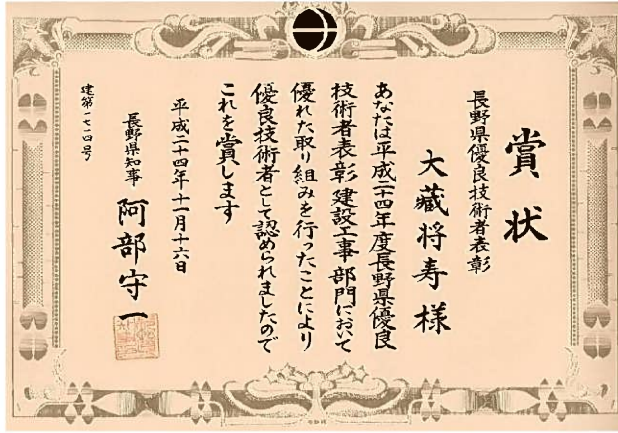 賞状
長野県優良技術者表彰
大藏将寿様
あなたは平成二十四年度長野県優良
技術者表彰建設工事部門において
優れた取り組みを行ったことにより
優良技術者として認められましたので
これを賞します
平成二十四年十一月十六日
長野県知事 阿部守一
建第一七一四号